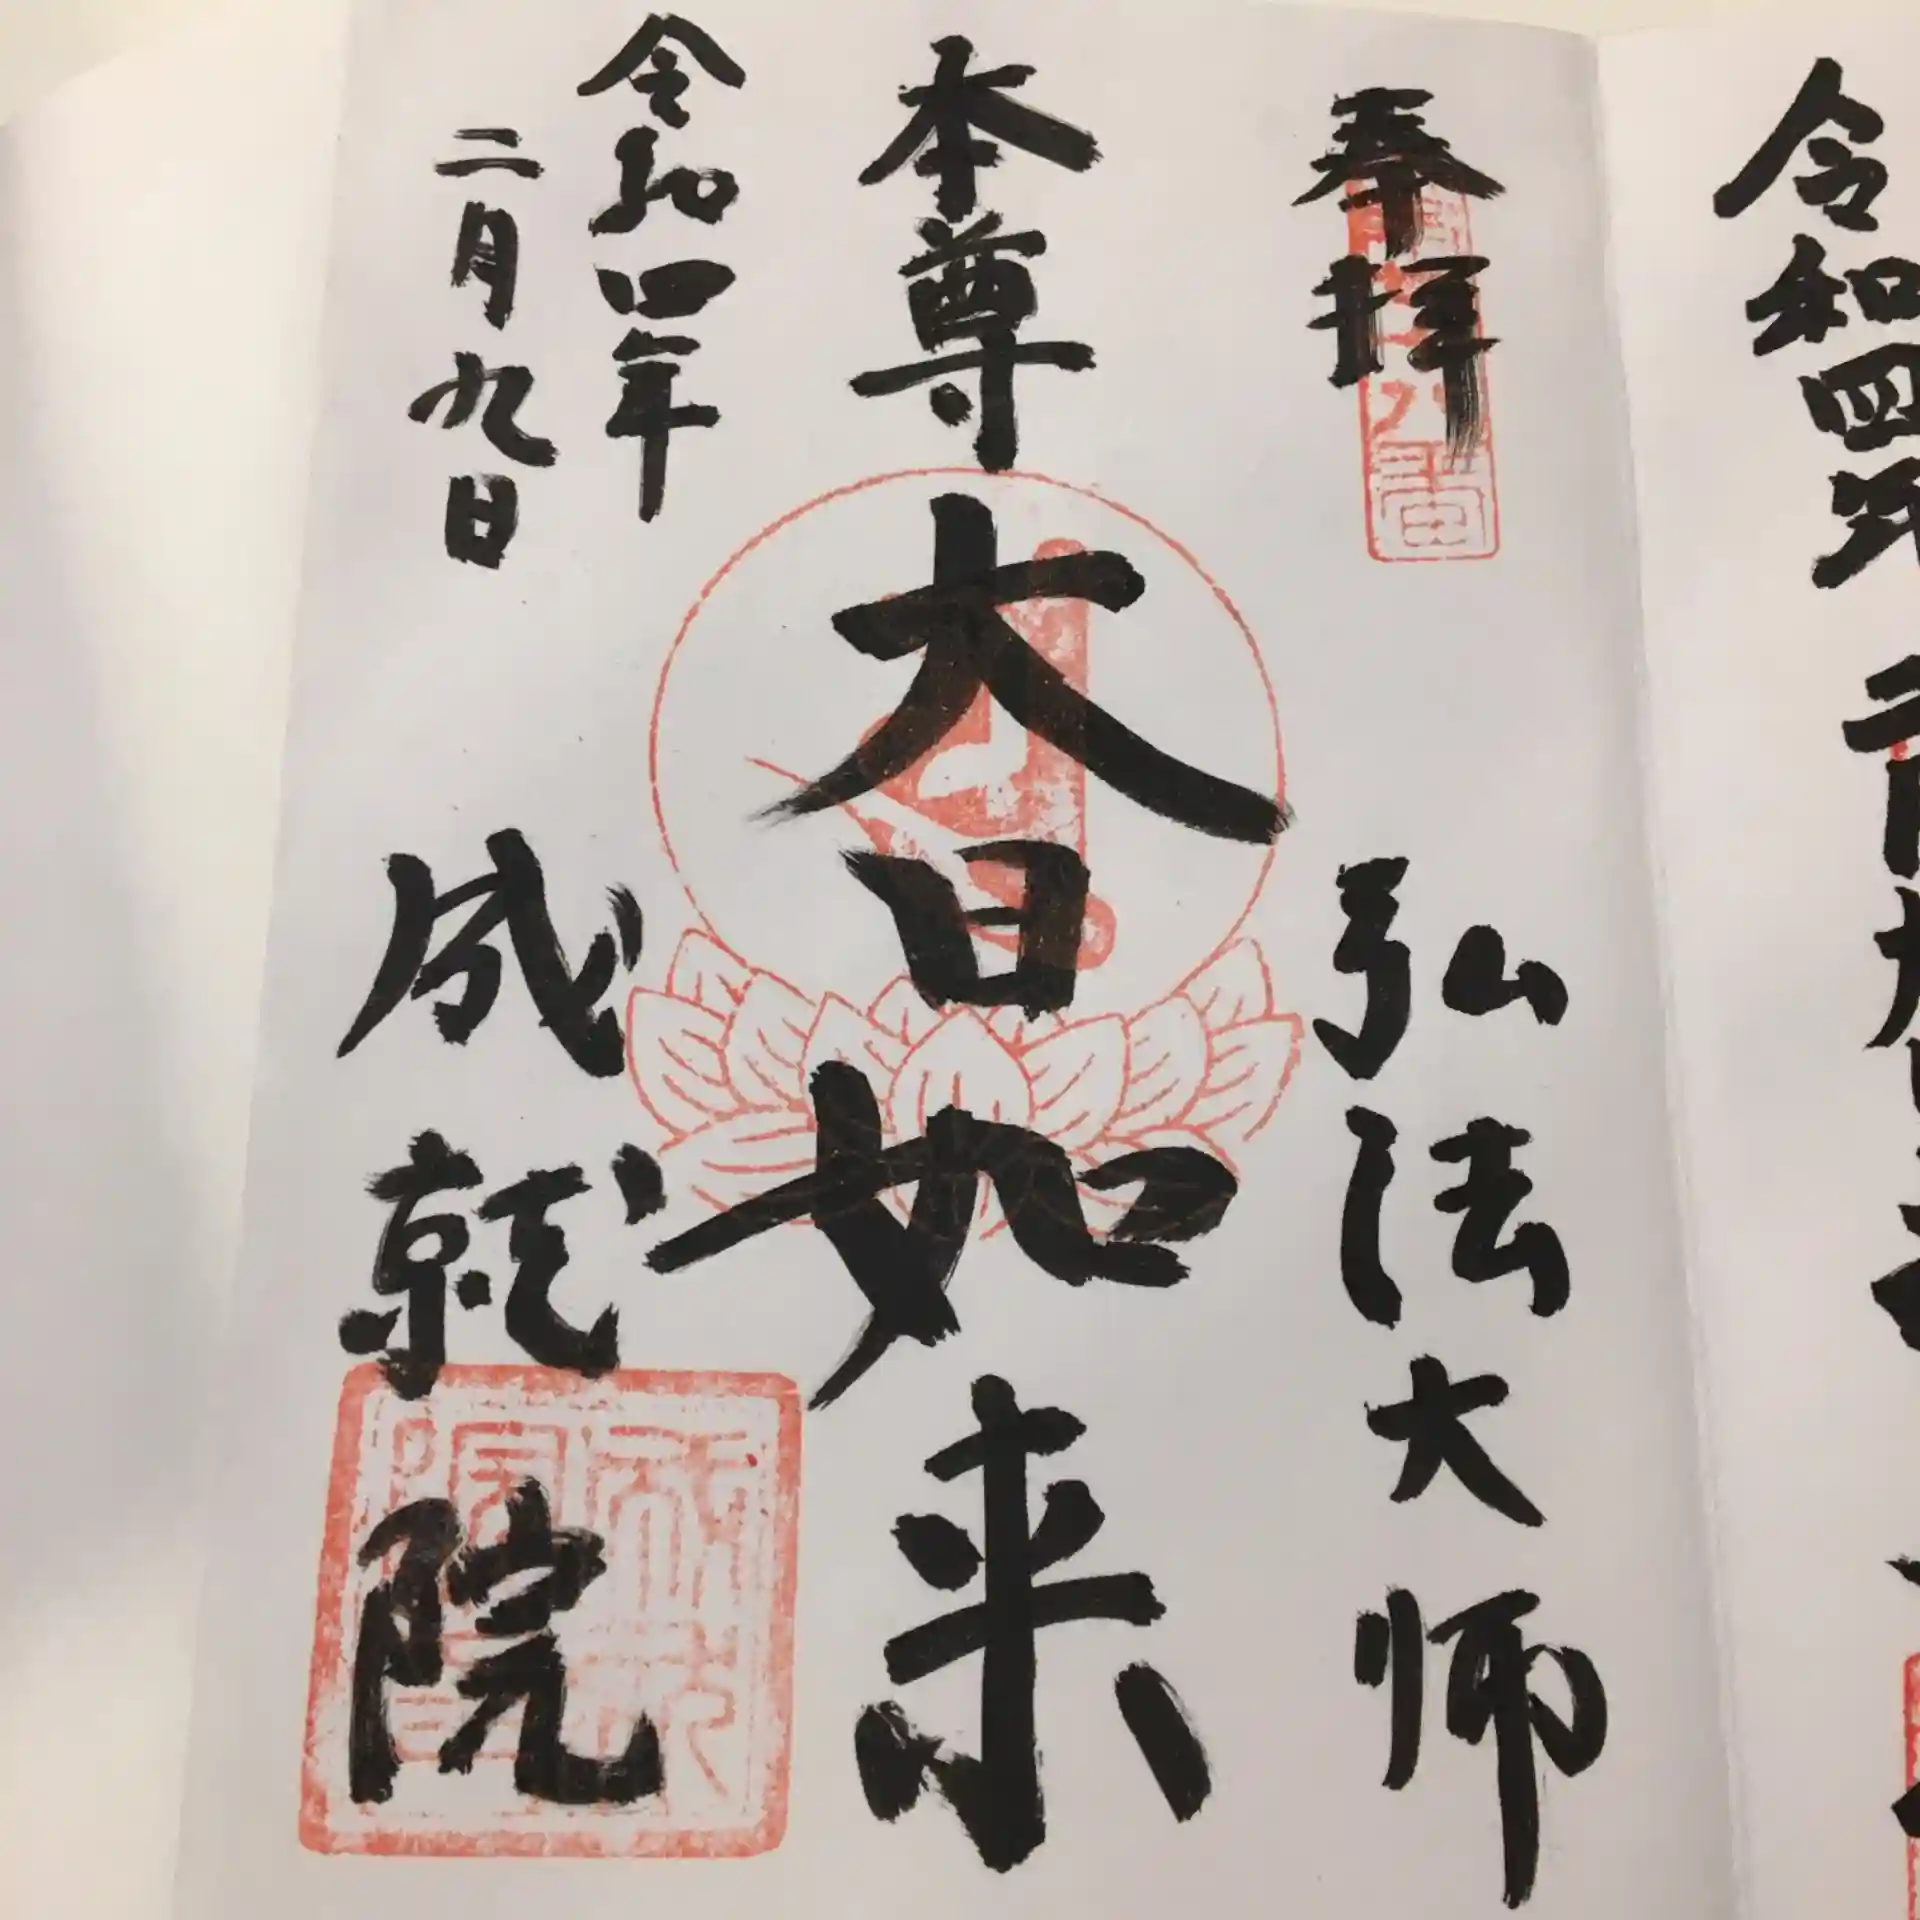 令和四年
奉拝
弘法大師
本尊
大日如来
令和四年
二月九日
成就院